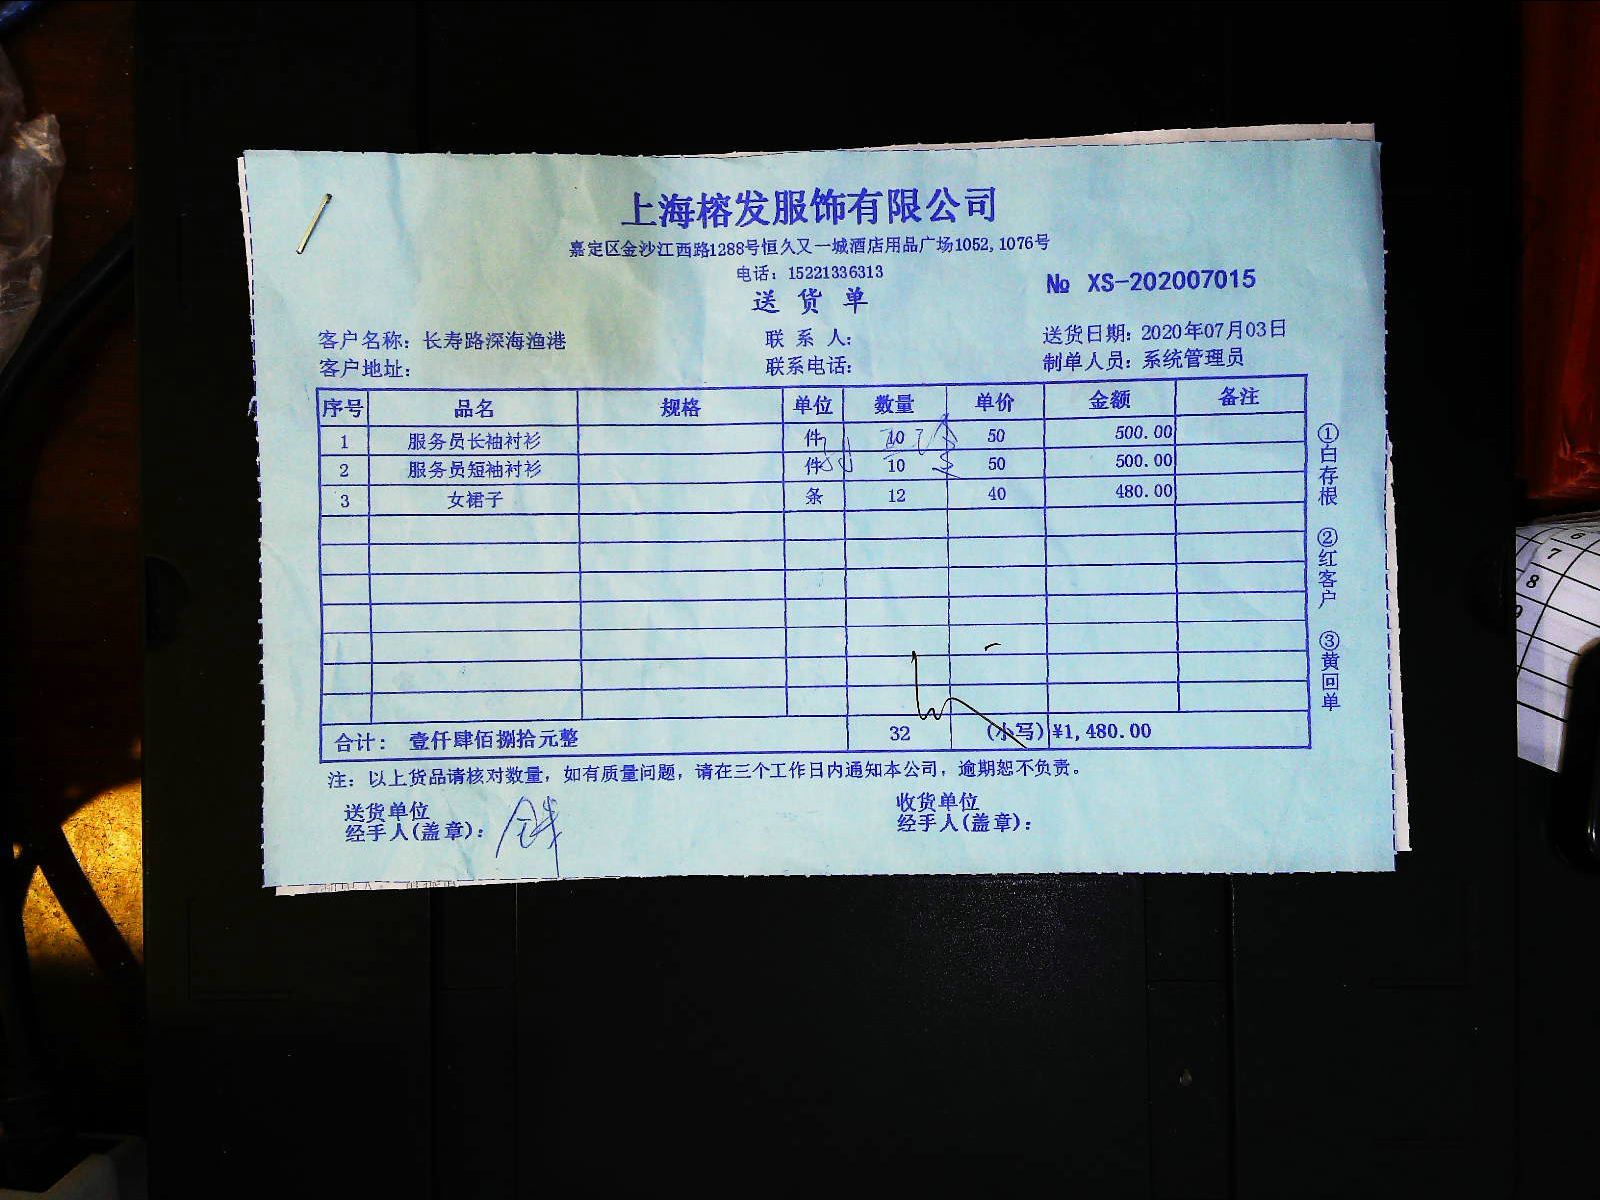 上海榕发服饰有限公司
嘉定区金沙江西路1288号恒久又一城酒店用品广场1052,1076号
电话：15221336313
№ XS-202007015
送货单
客户名称：长寿路深海渔港 联系人： 送货日期：2020年07月03日
客户地址： 联系电话： 制单人员：系统管理员
序号 品名 规格 单位 数量 单价 金额 备注
1 服务员长袖衬衫 件 10 50 500.00
2 服务员短袖衬衫 件 10 50 500.00
3 女裙子 条 12 40 480.00
合计： 壹仟肆佰捌拾元整 32 (小写) ¥1,480.00
注：以上货品请核对数量，如有质量问题，请在三个工作日内通知本公司，逾期恕不负责。
送货单位 收货单位
经手人(盖章)： 经手人(盖章)：
①白存根 ②红客户 ③黄回单
6
7
8
9